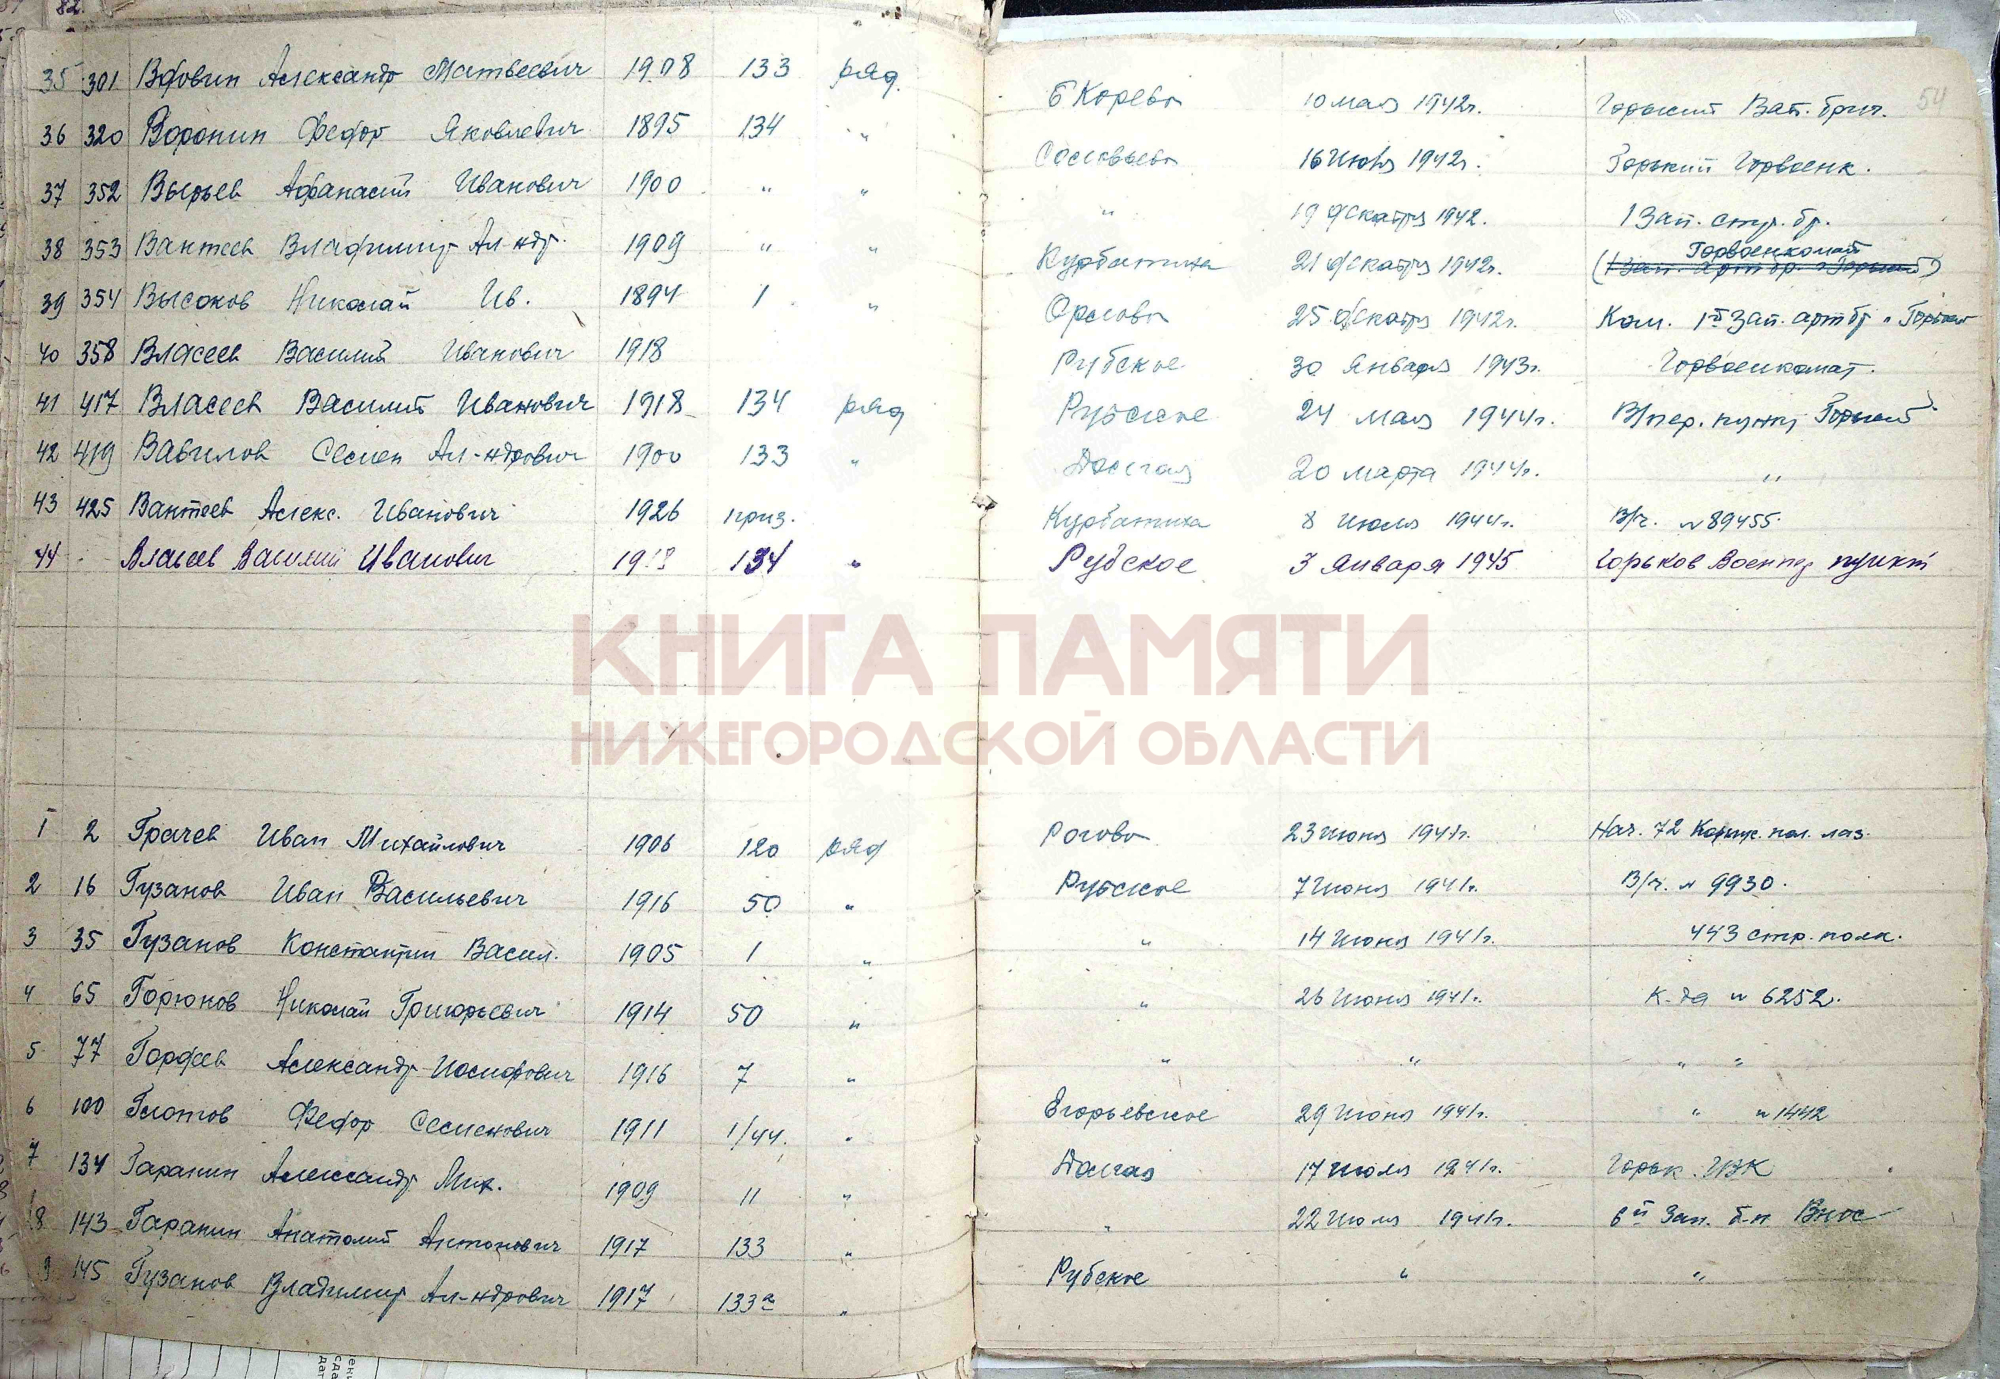 82.
35 301 Вдовин Александр Матвеевич 1908 133 ряд. Б Корево 10 мая 1942г. Горький Зап. бриг. 54
36 320 Воронин Федор Яковлевич 1895 134 " Соловьево 16 июня 1942г. Горький Горвоенк.
37 352 Вырьев Афанасий Иванович 1900 " " " 19 декабря 1942. 1 Зап. стр. бр.
38 353 Вантеев Владимир Ал-ндр. 1909 " " Курбатиха 21 декабря 1942г. Горвоенкомат
39 354 Высоков Николай Ив. 1894 1 " Орлово 25 декабря 1942г. Ком. 1й Зап. арт бр. Горький
40 358 Власеев Василий Иванович 1918 Рубское 30 января 1943г. Горвоенкомат.
41 417 Власеев Василий Иванович 1918 134 ряд Рубское 24 мая 1944г. В/пер. пункт Горький
42 419 Вавилов Семен Ал-ндрович 1900 133 " Долгая 20 марта 1944г. "
43 425 Вантеев Алекс. Иванович 1926 приз. Курбатиха 8 июля 1944г. В/ч. № 89455.
44 - Власеев Василий Иванович 134 " Рубское 3 января 1945 Горьков Военпер пункт
КНИГА ПАМЯТИ
НИЖЕГОРОДСКОЙ ОБЛАСТИ
1 2 Грачев Иван Михайлович 1906 120 ряд Рогово 23 июня 1941г. Нач. 72 пол. лаз.
2 16 Гузанов Иван Васильевич 1916 50 " Рубское 7 июня 1941г. В/ч. № 9930.
3 35 Гузанов Константин Васил. 1905 1 " " 14 июня 1941г. 443 стр. полк.
4 65 Горюнов Николай Григорьевич 1914 50 " " 26 июня 1941г. К-да № 6252.
5 77 Гордеев Александр Иосифович 1916 7 " " " " "
6 100 Глотов Федор Семенович 1911 1/44. " Егорьевское 29 июня 1941г. " № 1442
7 134 Гаранин Александр Мих. 1909 11 " Долгая 17 июля 1941г. Горьк.
8 143 Гаранин Анатолий Антонович 1917 133 " " 22 июля 1941г. 6й Зап. б-н Внос
9 145 Гузанов Владимир Ал-ндрович 1917 133а " Рубское " "